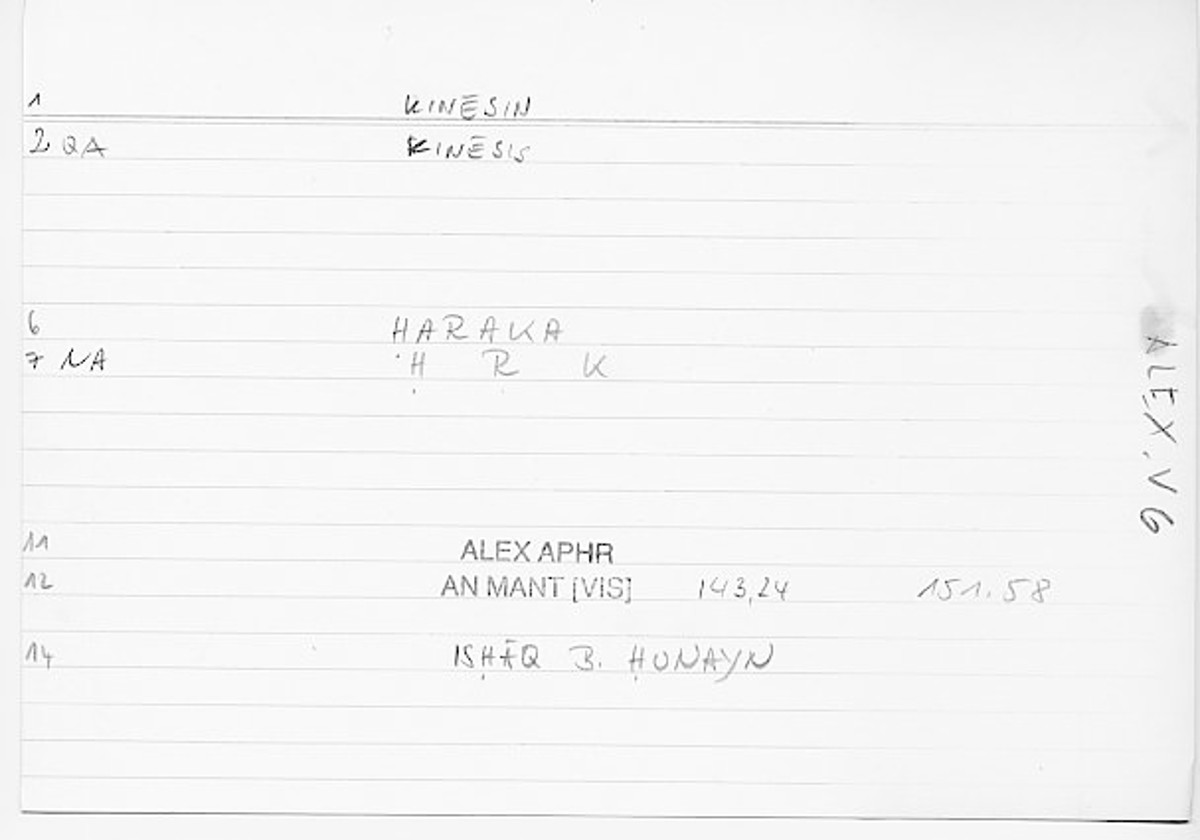 1 KINĒSIN
2 QA KINĒSIS
6 HARAKA
7 NA Ḥ R K
11 ALEX APHR
12 AN MANT [VIS] 143,24 151.58
14 ISḤĀQ B. ḤUNAYN
ALEX. V 6